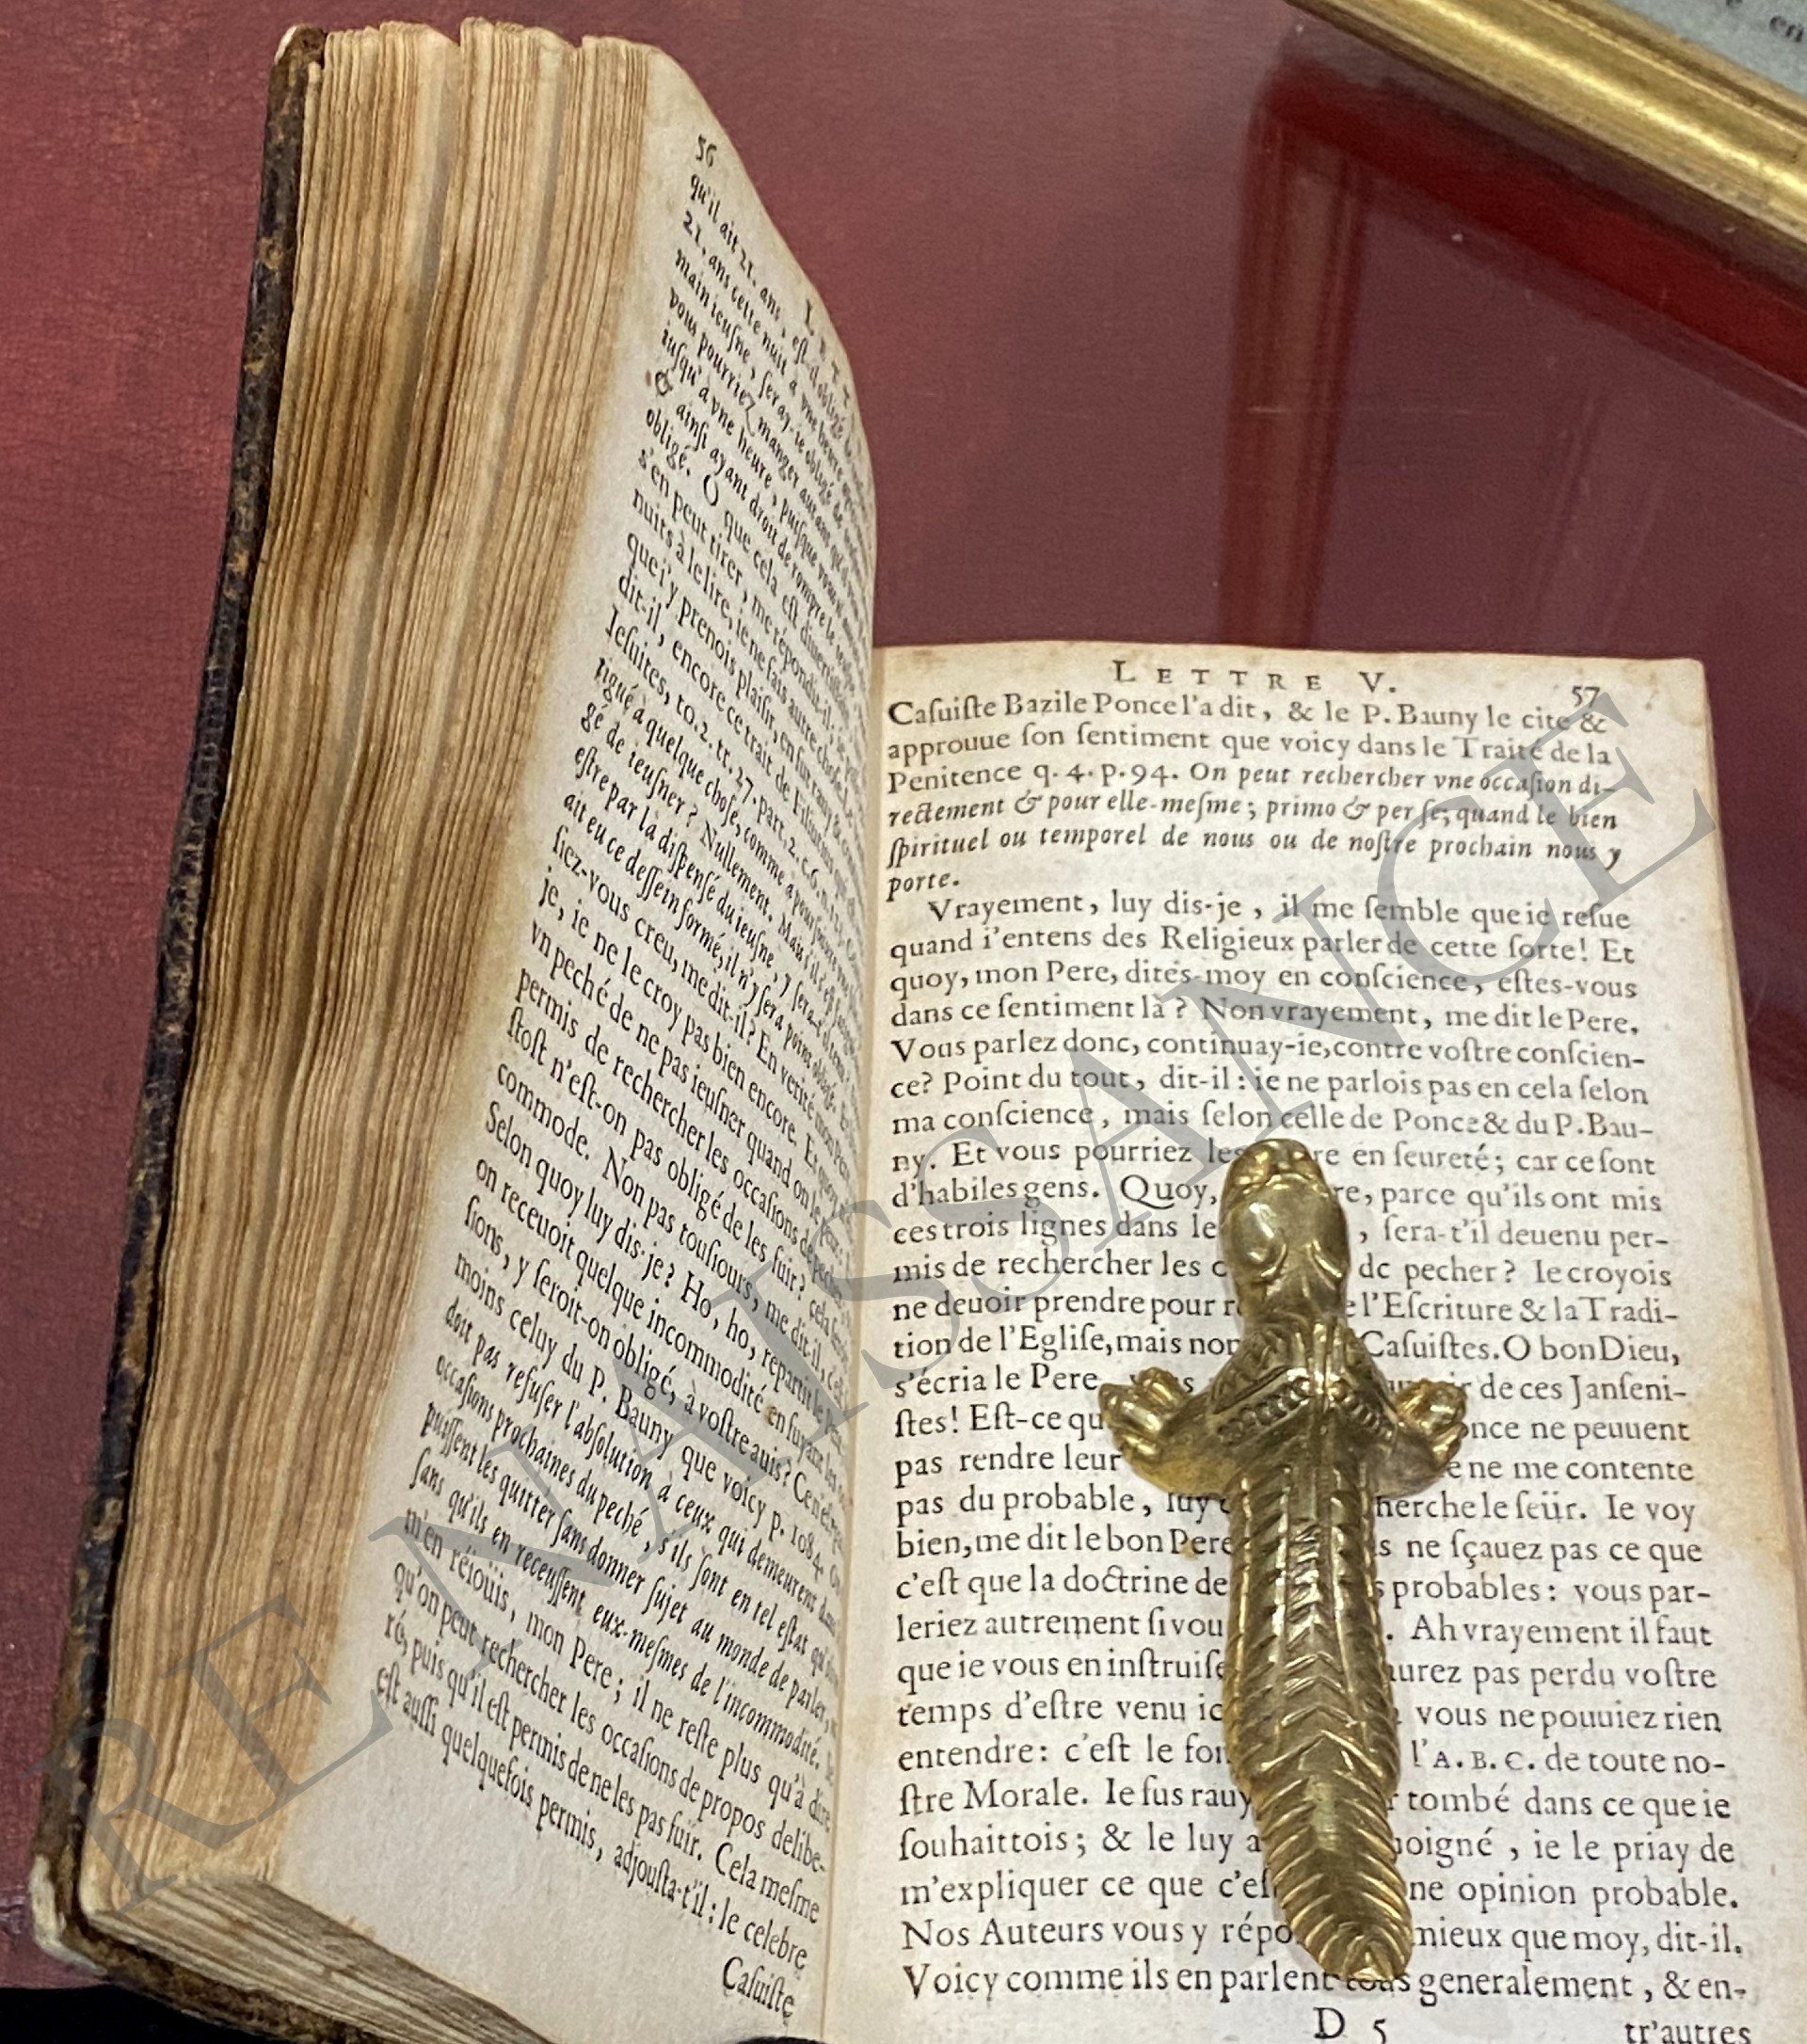 56
qu'il ait 21. ans, est-il obligé
21. ans cette nuit à vne heure
main ieusne, seray-ie obligé de
vous pourriez manger autant qu'il
iusqu'à vne heure, puisque vous
& ainsi ayant droit de rompre le ieusne
obligé. O que cela est diuertissant
s'en peut tirer, me répondit-il: ie
nuits à le lire, ie ne fais autre chose. Le
que i'y prenois plaisir, en fut rauy, &
dit-il, encore ce trait de Filiutius, qui est
Iesuites, to. 2. tr. 27. part. 2. c. 6. n.
tigué à quelque chose, comme à poursuiure
gé de ieusner? Nullement. Mais s'il s'est fatigué
estre par là dispensé du ieusne, y sera-t'il tenu?
ait eu ce dessein formé, il n'y sera point obligé.
siez-vous creu, me dit-il? En verité mon Pere
je, ie ne le croy pas bien encore. Et quoy
vn peché de ne pas ieusner quand on le peut?
permis de rechercher les occasions de pecher
stost n'est-on pas obligé de les fuir? cela seroit
commode. Non pas tousiours, me dit-il, c'est
Selon quoy luy dis-je? Ho, ho, repartit le Pere
on receuoit quelque incommodité en fuyant les
sions, y seroit-on obligé, à vostre auis? Ce n'est
moins celuy du P. Bauny que voicy p. 1084. On
doit pas refuser l'absolution à ceux qui demeurent dans
occasions prochaines du peché, s'ils sont en tel estat
puissent les quitter sans donner sujet au monde de parler,
sans qu'ils en receussent eux-mesmes de l'incommodité.
m'en réioüis, mon Pere; il ne reste plus qu'à dire
qu'on peut rechercher les occasions de propos delibe-
ré, puis qu'il est permis de ne les pas fuir. Cela mesme
est aussi quelquefois permis, adjousta-t'il: le celebre
Casuiste
LETTRE V. 57
Casuiste Bazile Ponce l'a dit, & le P. Bauny le cite &
approuue son sentiment que voicy dans le Traité de la
Penitence q. 4. p. 94. On peut rechercher vne occasion di-
rectement & pour elle-mesme; primo & per se, quand le bien
spirituel ou temporel de nous ou de nostre prochain nous y
porte.
Vrayement, luy dis-je, il me semble que ie resue
quand i'entens des Religieux parler de cette sorte! Et
quoy, mon Pere, dites-moy en conscience, estes-vous
dans ce sentiment là? Non vrayement, me dit le Pere.
Vous parlez donc, continuay-ie, contre vostre conscien-
ce? Point du tout, dit-il: ie ne parlois pas en cela selon
ma conscience, mais selon celle de Ponce & du P. Bau-
ny. Et vous pourriez les re en seureté; car ce sont
d'habiles gens. Quoy, re, parce qu'ils ont mis
ces trois lignes dans le , sera-t'il deuenu per-
mis de rechercher les de pecher? Ie croyois
ne deuoir prendre pour l'Escriture & la Tradi-
tion de l'Eglise, mais non Casuistes. O bon Dieu,
s'écria le Pere, de ces Janseni-
stes! Est-ce qu once ne peuuent
pas rendre leur ne me contente
pas du probable, luy herche le seür. Ie voy
bien, me dit le bon Pere s ne sçauez pas ce que
c'est que la doctrine de s probables: vous par-
leriez autrement si vou . Ah vrayement il faut
que ie vous en instruise urez pas perdu vostre
temps d'estre venu ic vous ne pouuiez rien
entendre: c'est le fon l'A. B. C. de toute no-
stre Morale. Ie fus rauy tombé dans ce que ie
souhaittois; & le luy a oigné, ie le priay de
m'expliquer ce que c'es ne opinion probable.
Nos Auteurs vous y répo mieux que moy, dit-il.
Voicy comme ils en parlent tous generalement, & en-
D 5 tr'autres
RENAISSANCE
en